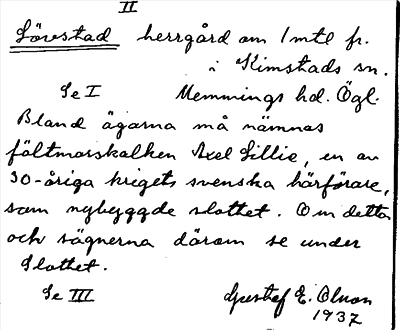 II
Lövestad herrgård om 1 mtl fr.
i Kimstads sn.
Se I Memmings hd. Ögl.
Bland ägarna må nämnas
fältmarskalken Axel Lillie, en av
30-åriga krigets svenska härförare,
som nybyggde slottet. Om detta
och sägnerna därom se under
Slottet.
Se III Gustaf E. Olson
1937